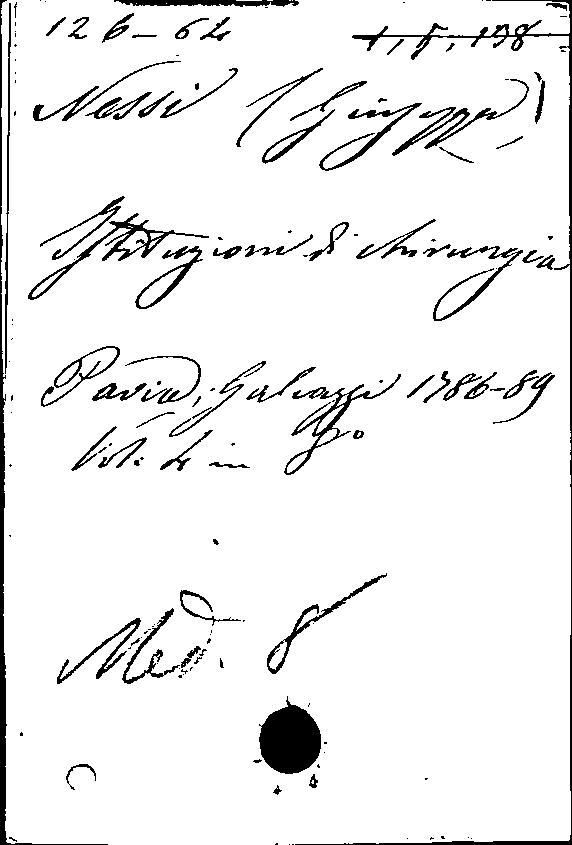 126-64 1, 5, 198
Nessi (Giuseppe)
Istituzioni di chirurgia
Pavia, Galeazzi 1786-89
Vol. 4 in 8°
Med. 8